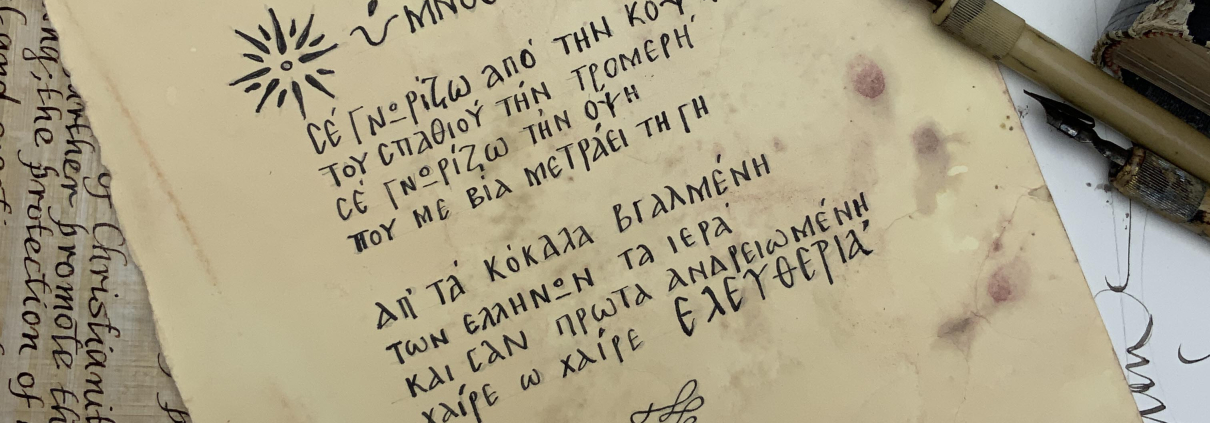 Ϲέ Γνωρίζω από την
του Ϲπαθιού τήν τρομερή
Ϲέ Γνωρίζω τήν οψη
που με βία μετράει τη γη
απ' τά κόκαλα βγαλμένη
των ελληνων τα ιερά
και Ϲαν πρωτα ανδρειωμένη
χαίρε ω χαίρε Ελευθεριά
Christianit
further promote th
the protection of